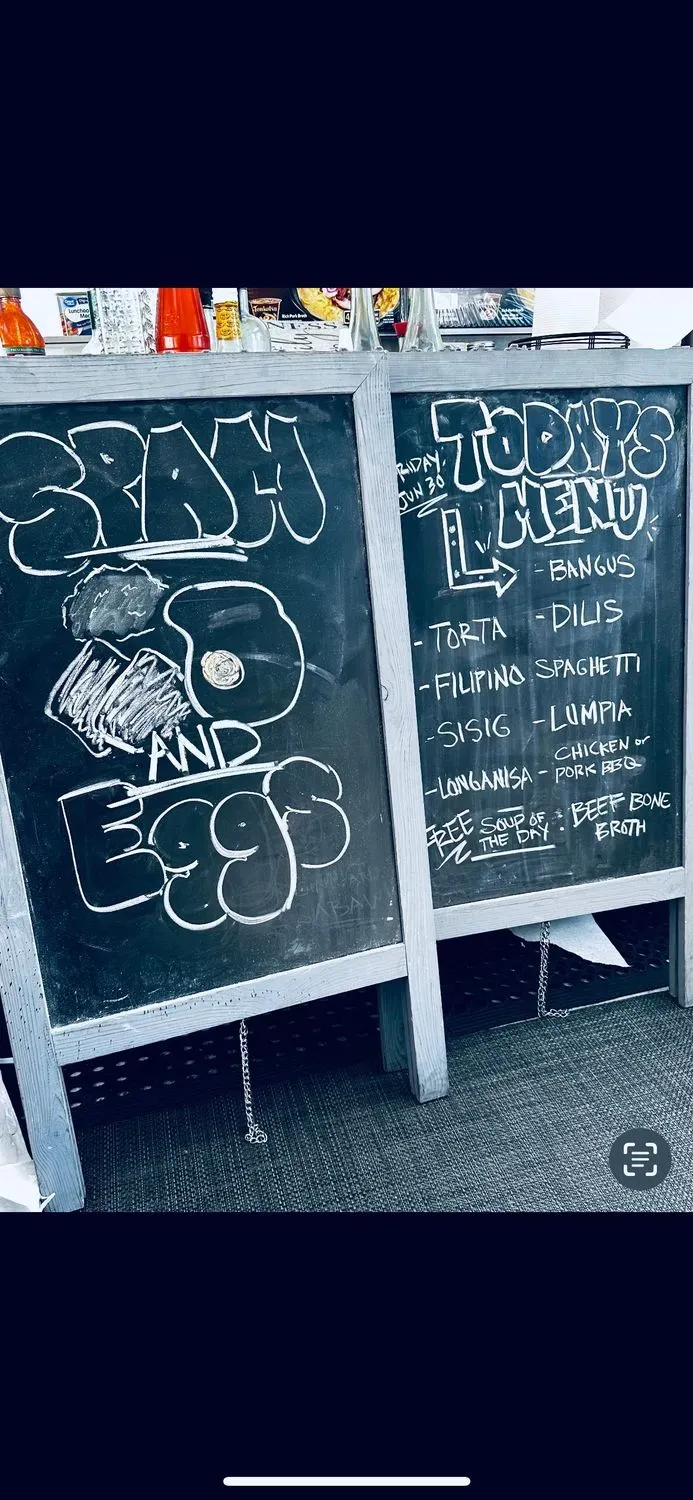 SPAM
AND
Eggs
TODAYS
MENU
FRIDAY,
JUN 30
- BANGUS
- TORTA
- DILIS
- FILIPINO SPAGHETTI
- SISIG
- LUMPIA
- LONGANISA
- CHICKEN or
PORK BBQ
FREE SOUP OF
THE DAY : BEEF BONE
BROTH